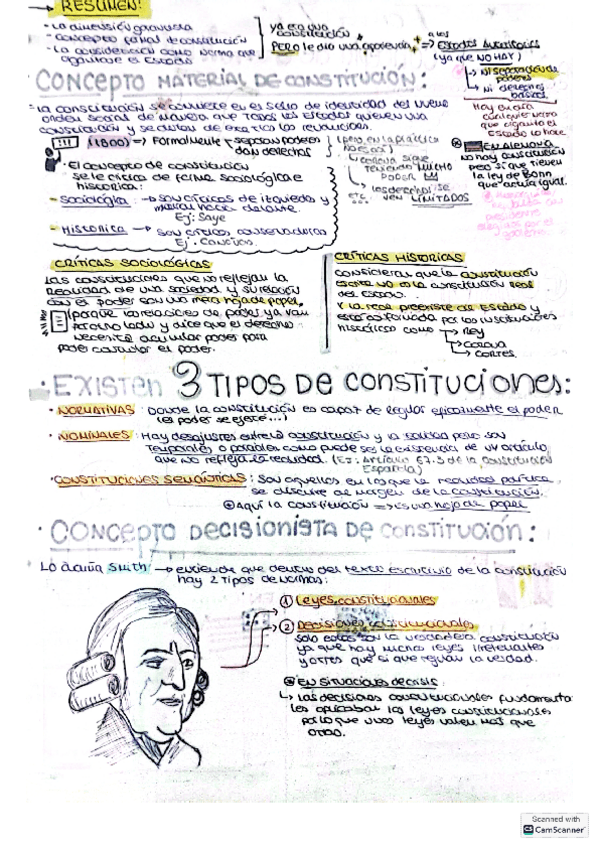 → RESUMEN:
- La dimensión garantista
- concepto formal de constitución
- La consideración como norma que
organiza el Estado
ya era una
constitución
PERO le dio una apariencia
a los
⇒ Estados Autoritarios
(ya que NO HAY)
↳ Ni separación de
poderes
↳ Ni derechos
básicos
CONCEPTO MATERIAL DE CONSTITUCIÓN:
- La constitución se convierte en el sello de identidad del nuevo
orden social de manera que todos los Estados quieren una
constitución
(1800) ⇒ Formalmente
separan poderes
dan derechos
(pero en la práctica
no es así)
corona sigue
teniendo MUCHO
PODER
los derechos se
ETC. VEN LIMITADOS
Hoy en día
cualquier norma
que organiza el
Estado lo hace
En Alemania
no hay constitución
pero sí que tienen
la ley de Bonn
que actúa igual.
· El concepto de constitución
se le critica de forma sociológica e
histórica:
- Sociológica: → son críticas de izquierda y
Ej:
- Histórica → son críticas conservadoras
Ej:
CRÍTICAS SOCIOLÓGICAS
Las constituciones que no reflejan la
realidad de una sociedad y su relación
con el poder son una mera hoja de papel.
porque las relaciones de poder ya van
por otro lado y dice que el derecho
necesita acumular poder para
poder controlar el poder.
CRÍTICAS HISTÓRICAS
Consideran que la constitución
escrita no es la constitución real
del Estado.
Y la real preexiste al Estado y
está conformada por las instituciones
históricas como → Rey
→ corona
→ cortes.
· EXISTEN 3 TIPOS DE CONSTITUCIONES:
· NORMATIVAS: Donde la constitución es capaz de regular eficazmente el poder
(el poder se ejerce...)
· NOMINALES: Hay desajustes entre la constitución y la realidad pero son
temporales o parciales como puede ser la existencia de un artículo
que no refleja la realidad. (Ej: Artículo 57.3 de la Constitución
Española)
· CONSTITUCIONES SEMÁNTICAS: Son aquellas en las que la realidad política
se discurre al margen de la constitución.
Aquí la constitución ⇒ es una hoja de papel
· CONCEPTO DECISIONISTA DE CONSTITUCIÓN:
Smith → entiende que dentro del texto escrito de la constitución
hay 2 tipos de normas:
① Leyes constitucionales
② Decisiones constitucionales
Solo estas son la verdadera constitución
ya que hay muchas leyes irrelevantes
y otras que sí que regulan la verdad.
EN SITUACIONES DE CRISIS:
↳ las decisiones constitucionales fundamenta
les aplicaban las leyes constitucionales
por lo que unas leyes valen más que
otras.
Scanned with
CamScanner